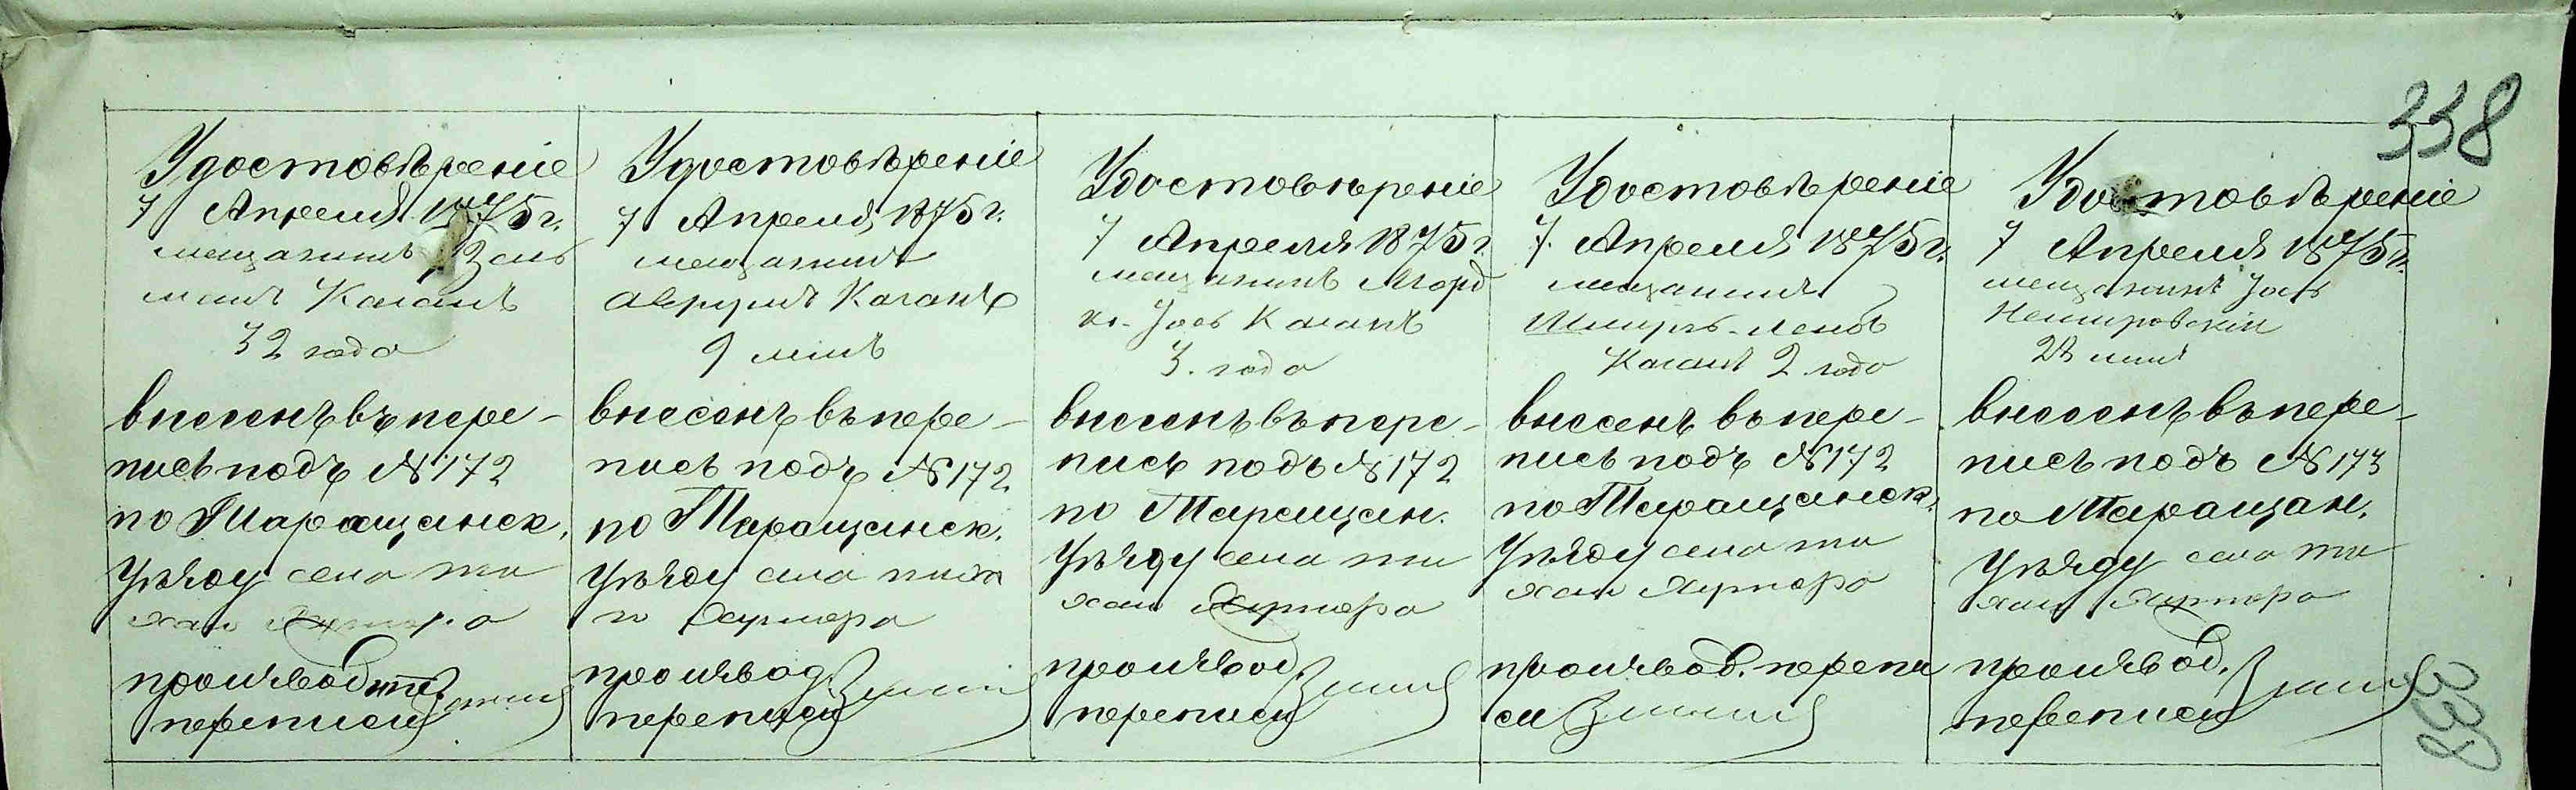 338
Удостовѣреніе
7 Апреля 1875 г.
мещанинъ Зель
манъ Каганъ
32 года
внесенъ въ пере-
пись подъ № 172
по Таращанск.
Уѣзду села Ти
хаго Хутора
производит.
переписи
Удостовѣреніе
7 Апреля 1875 г.
мещанинъ
Аврумъ Каганъ
9 лѣтъ
внесенъ въ пере-
пись подъ № 172
по Таращанск.
Уѣзду села Тиха
го Хутора
производ.
переписи
Удостовѣреніе
7 Апреля 1875 г.
мещанинъ Морд
ко-Іось Каганъ
3. года
внесенъ въ пере-
пись подъ № 172
по Таращан.
Уѣзду села Ти
хаго Хутора
производ.
переписи
Удостовѣреніе
7. Апреля 1875 г.
мещанинъ
Каганъ 2 года
внесенъ въ пере-
пись подъ № 172
по Таращанск.
Уѣзду села Ти
хаго Хутора
производ. перепи
си
Удостовѣреніе
7 Апреля 1875 г.
мещанинъ Іось
Немировскій
28 лѣтъ
внесенъ въ пере-
пись подъ № 173
по Таращан.
Уѣзду села Ти
хаго Хутора
производ.
переписи
338